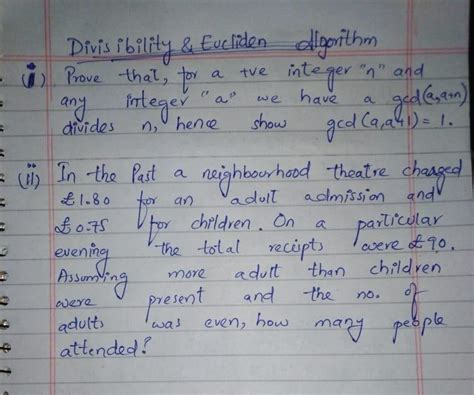 Divisibility & Eucliden Algorithm
(i) Prove that, for a +ve integer "n" and
any integer "a" we have a gcd(a,a+n)
divides n, hence show gcd(a,a+1) = 1.
(ii) In the Past a neighbourhood theatre chaaged
£1.80 for an adult admission and
£0.75 for children. On a particular
evening the total reciipts were £90.
Assuming more adult than children
were present and the no. of
adults was even, how many people
attended?